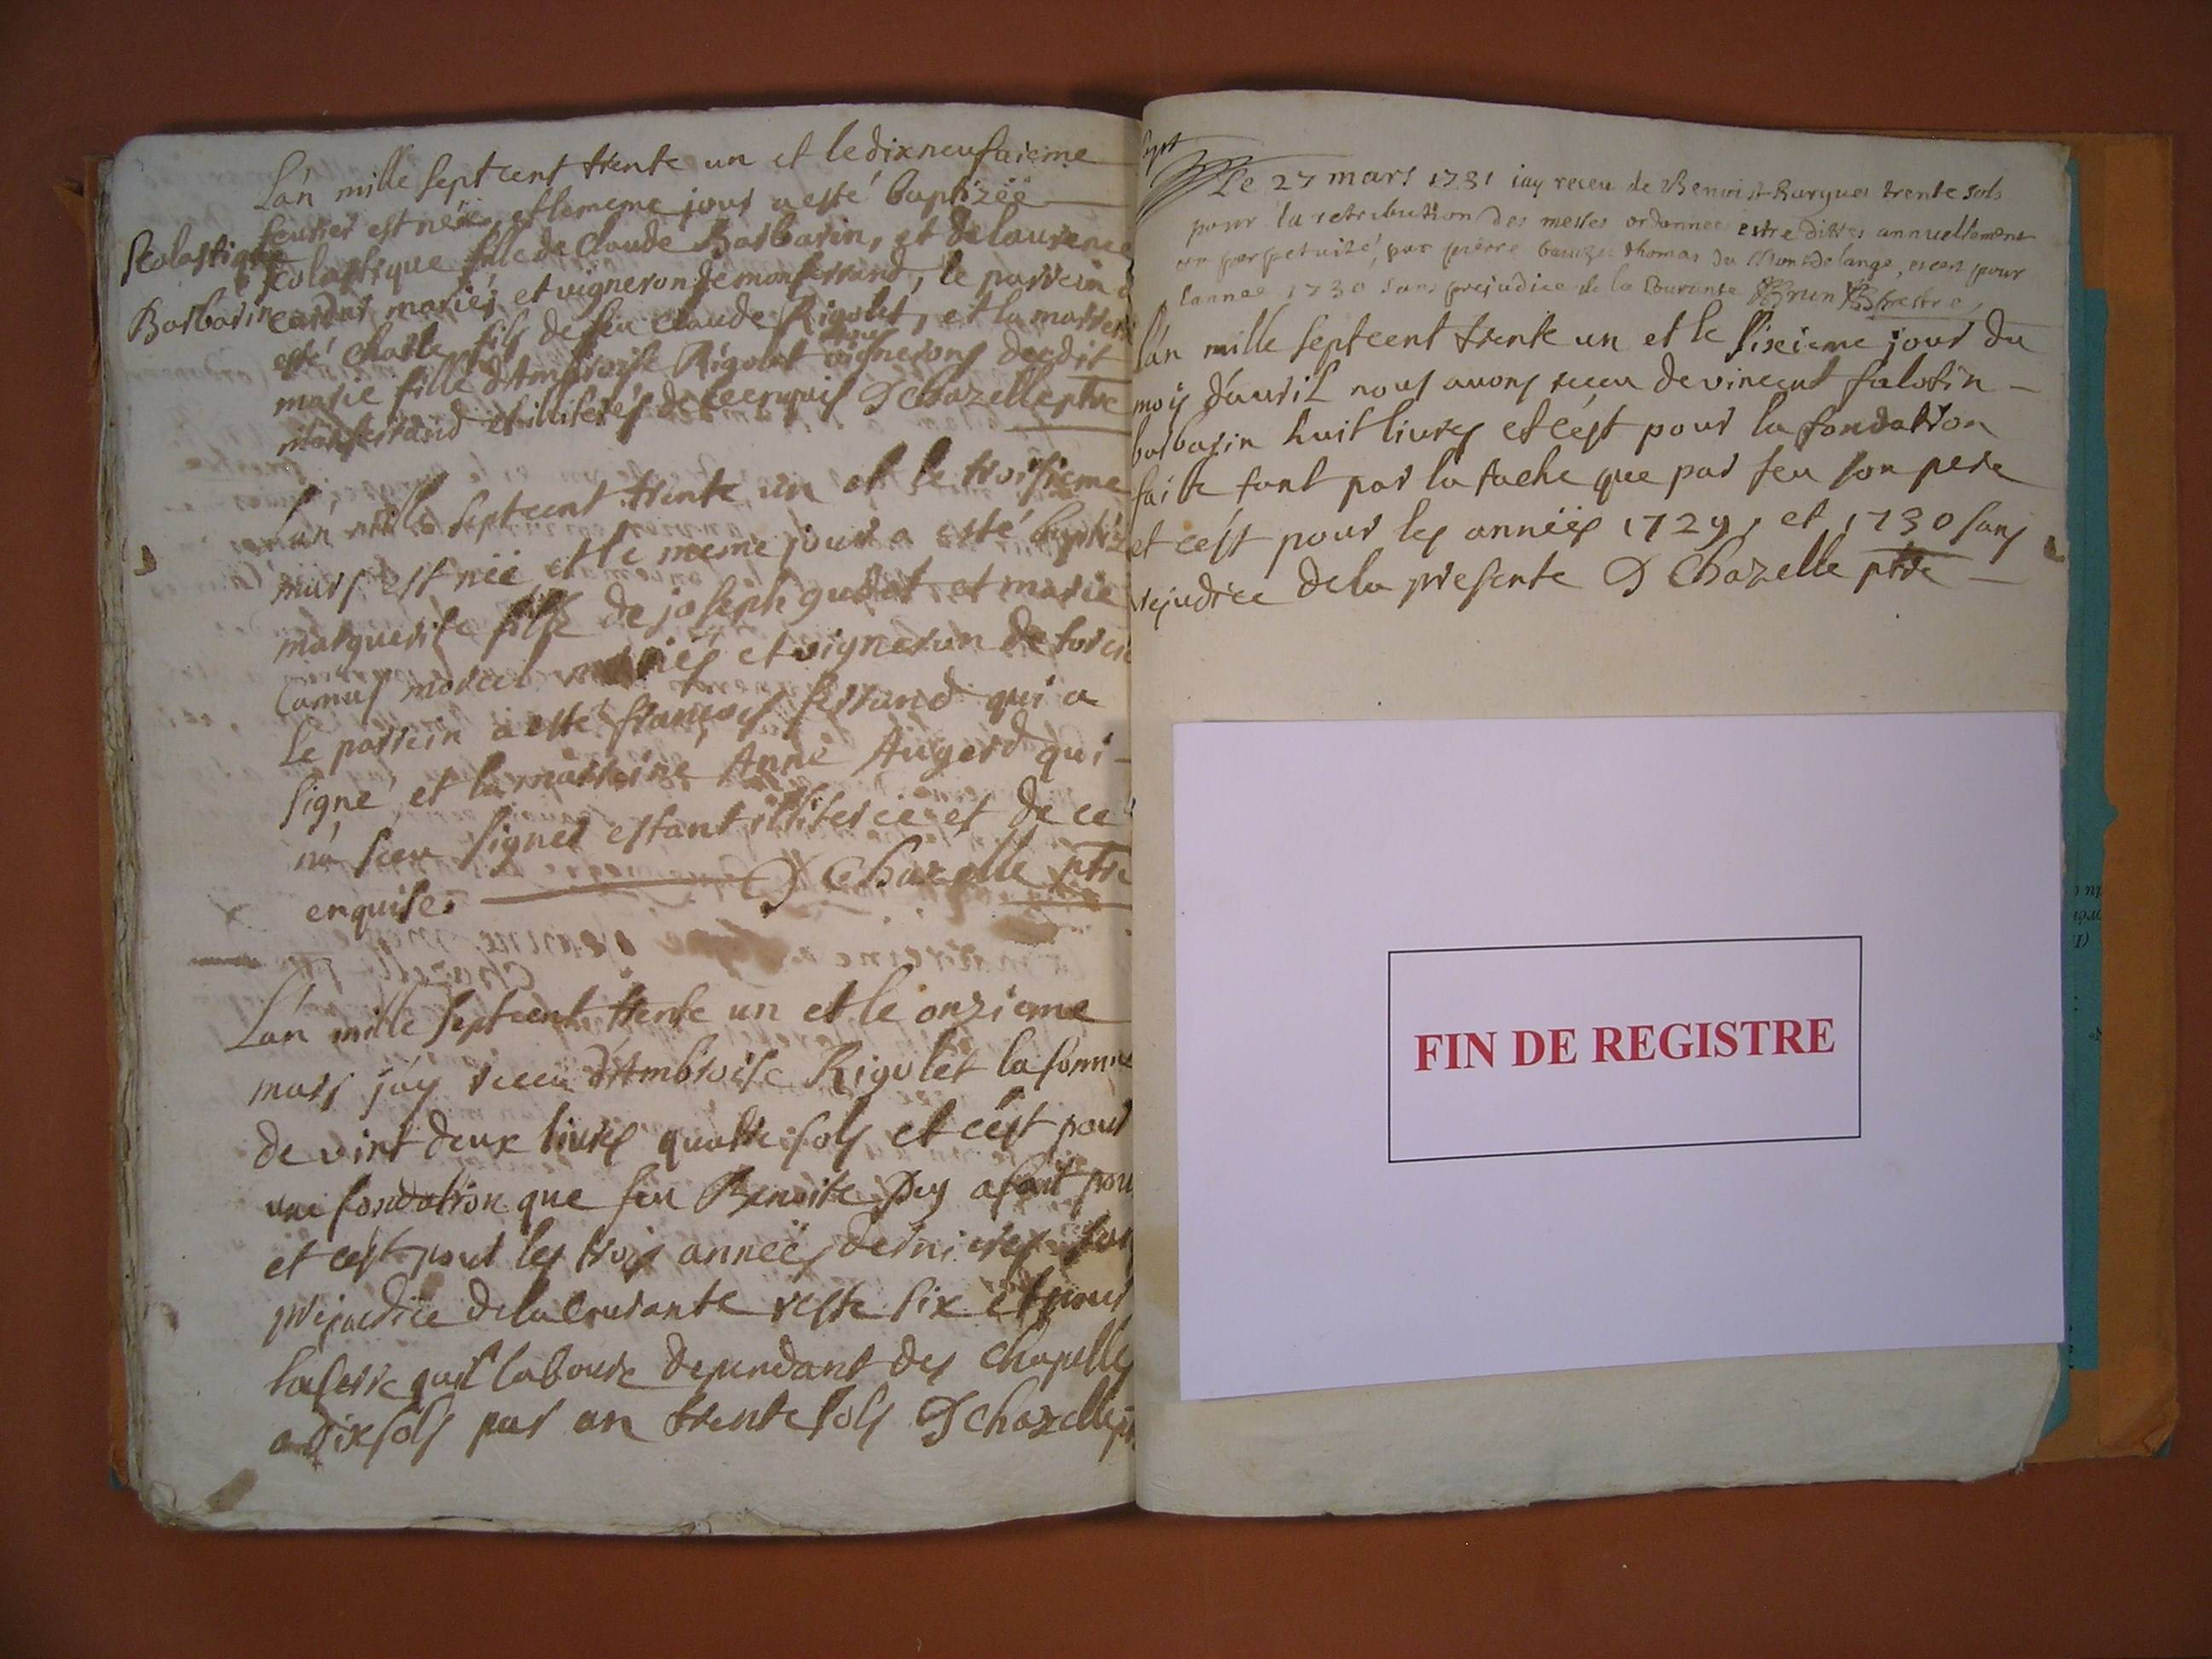 L'an mille sept cent trente un et le dixneufuieme
feurier est neée et le meme jour a esté baptizéé
Scolastique
scolastique fille de Claude Barbarin, et de laurence
Barbarin
mariés et uigneron de monferrand, le parrein
esté charle fils de feu claude Rigolet, et la marreine
marie fille d'Ambroise Rigolet uignerons dudit
monferrand et illiterés de ce enquis D Chazelle ptre
L'an mille septcent trente un et le troisieme
mars est néé et le meme jour a esté baptizé
marguerite fille de joseph gudet et marie
Camus morel mariés et uigneron de
Le parrein a esté françois ferrand qui a
signé et la marreine Anne Augerd qui
n'a sceu signer estant illiterée et de ce
enquise. D Chazelle ptre
L'an mille septcent trente un et le onzieme
mars j'ay receu d'Ambroise Rigolet la somme
de vint deux liures quattre sols et cést pour
une fondation que feu Benoite Pey a fait pour
et cést pour les trois annéés dernieres sans
préjudice de la courante reste six et pour
la serre quil laboure dependant des chapelles
a dix sols par an trente sols D chazelle ptre
Le 27 mars 1731 iay receu de Benoist trente sols
pour la retribution des messes ordonnees estre dittes annuellement
en perpetuité, par pierre thomas du Montdelange, et cest pour
lannee 1730 sans prejudice de la Courante Brun Prestre
l'an mille septcent trente un et le sixieme jour du
mois d'auril nous auons receu de vincent falotin
barbarin huit liures et cést pour la fondation
faitte tant par la tache que par feu son pere
et cést pour les annéés 1729, et 1730 sans
rejudice de la presente D Chazelle ptre
FIN DE REGISTRE